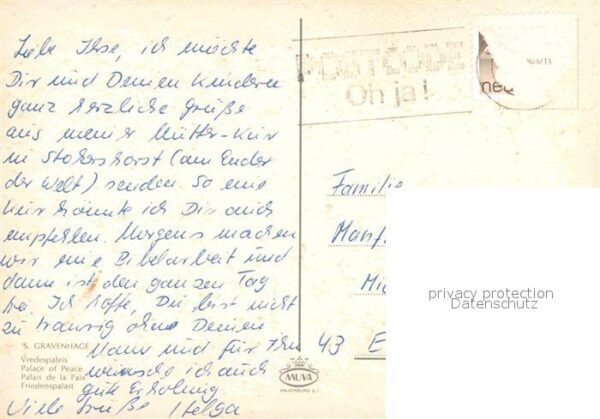 Liebe Ilse, ich möchte
Dir und Deinen Kindern
ganz herzliche Grüße
aus meiner Mütter-Kur
in (am Ende
der Welt) senden. So eine
Kur könnte ich Dir auch
empfehlen. Morgens machen
wir eine Bibelarbeit und
dann ist den ganzen Tag
frei. Ich hoffe, Du bist nicht
zu traurig ohne Deinen
Mann und für Ihn
wünsche ich auch
gute Erholung
Viele Grüße Helga
'S GRAVENHAGE
Vredespaleis
Palace of Peace
Palais de la Paix
Friedenspalast
POSTCODE
Oh ja!
Familie
Manf
43 E
MUVA
VALKENBURG
privacy protection
Datenschutz